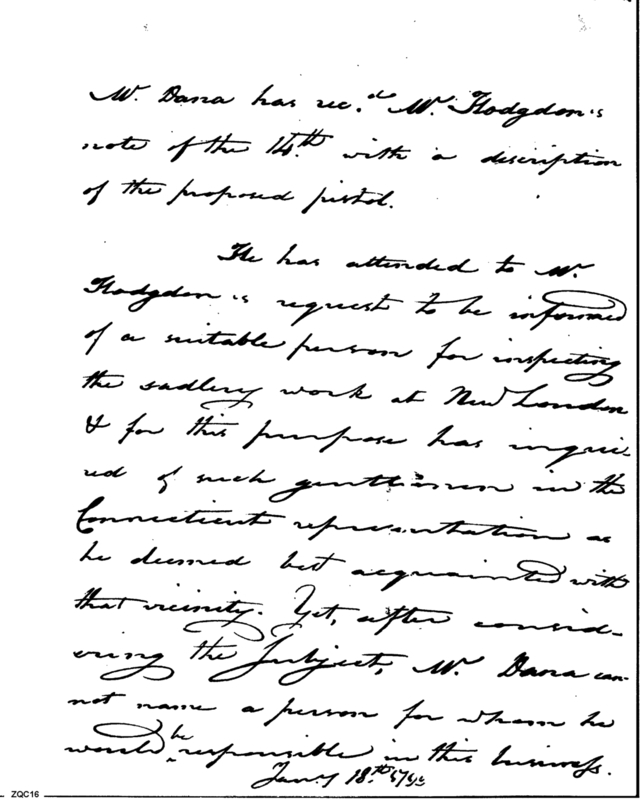 Mr. Dana has rec.d Mr. Hodgdon's
note of the 14.th with a discription
of the proposed pistol.
He has attended to Mr.
Hodgdon's request to be informed
of a suitable person for inspecting
the sadlery work at New London
& for this purpose has inqui-
red of such gentlemen in the
Connecticut representation as
he deemed best acquainted with
that vicinity. Yet, after consid-
ering the Subject, Mr. Dana can-
not name a person for whom he
would be responsible in this business.
Jany 18.th
ZQC16